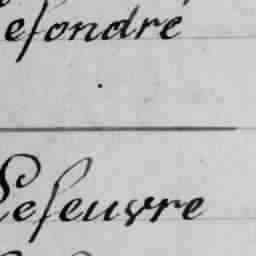 efondré
Lefeuvre